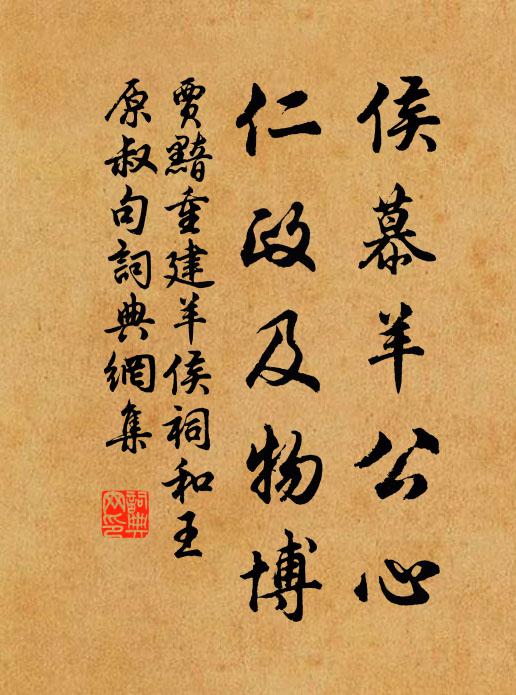 侯慕羊公心
仁政及物博
賈黯重建羊侯祠和王
原叔句詞典網集
詞典
网印